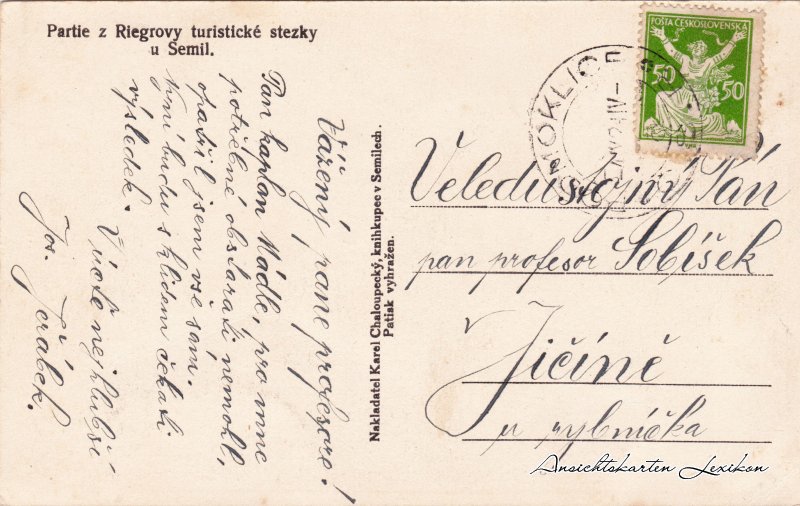 Partie z Riegrovy turistické stezky
u Semil.
Vážený pane profesore!
Pan kaplan Mádle, pro mne
potřebné obstarati nemohl,
opatřil jsem vše sám.
Nyní budu s klidem čekati
výsledek.
V úctě nejhlubší
Jos. Jeřábek.
Nakladatel Karel Chaloupecký, knihkupec v Semilech.
Patisk vyhražen.
POŠTA ČESKOSLOVENSKÁ
50 50
Veledůstojný Pán
pan profesor Sobíšek
v Jičíně
u rybníčka
Ansichtskarten Lexikon